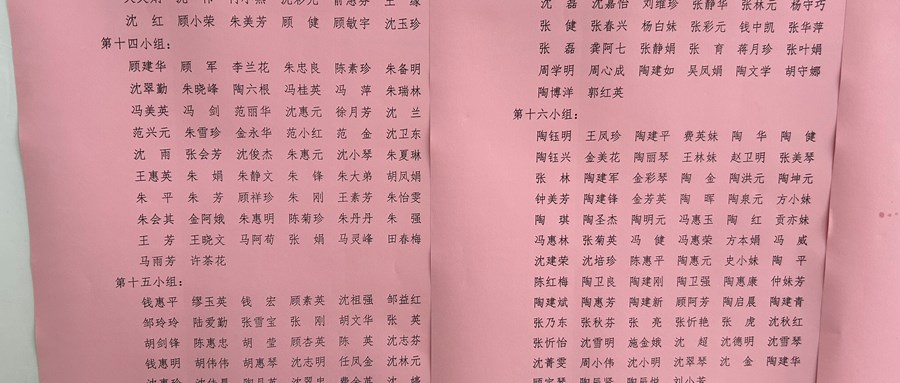 沈 红 顾小荣 朱美芳 顾 健 顾敏宇 沈玉珍
第十四小组：
顾建华 顾 军 李兰花 朱忠良 陈素珍 朱备明
沈翠勤 朱晓峰 陶六根 冯桂英 冯 萍 朱瑞林
冯美英 冯 剑 范丽华 沈惠元 徐月芳 沈 兰
范兴元 朱雪珍 金永华 范小红 范 金 沈卫东
沈 雨 张会芳 沈俊杰 朱惠元 沈小琴 朱夏琳
王惠英 朱 娟 朱静文 朱 锋 朱大弟 胡凤娟
朱 平 朱 芳 顾祥珍 朱 刚 王素芳 朱怡雯
朱会其 金阿娥 朱惠明 陈菊珍 朱丹丹 朱 强
王 芳 王晓文 马阿荀 张 娟 马灵峰 田春梅
马雨芳 许茶花
第十五小组：
钱惠平 缪玉英 钱 宏 顾素英 沈祖强 邹益红
邹玲玲 陆爱勤 张雪宝 张 刚 胡文华 张 英
胡剑锋 陈惠忠 胡 莹 顾杏英 陈 英 沈志芬
钱惠明 胡伟伟 胡惠琴 沈志明 任凤金 沈林元
沈 磊 沈嘉怡 刘维珍 张静华 张林元 杨守巧
张 健 张春兴 杨白妹 张彩元 钱中凯 张华萍
张 磊 龚阿七 张静娟 张 育 蒋月珍 张叶娟
周学明 周心成 陶建如 吴凤娟 陶文学 胡守娜
陶博洋 郭红英
第十六小组：
陶钰明 王凤珍 陶建平 费英妹 陶 华 陶 健
陶钰兴 金美花 陶丽琴 王林妹 赵卫明 张美琴
张 林 陶建军 金彩琴 陶 金 陶洪元 陶坤元
钟美芳 陶建锋 金芳英 陶 晖 陶泉元 方小妹
陶 琪 陶圣杰 陶明元 冯惠玉 陶 红 贡亦妹
冯惠林 张菊英 冯 健 冯惠荣 方本娟 冯 威
沈建荣 沈培珍 陈惠平 陶惠元 史小妹 陶 平
陈红梅 陶卫良 陶建刚 陶卫强 陶惠康 仲妹芳
陶建斌 陶惠芳 陶建新 顾阿芳 陶启晨 陶建青
张乃东 张秋芬 张 亮 张忻艳 张 虎 沈秋红
张忻怡 沈雪明 施金娥 沈 超 沈德明 沈雪琴
沈菁雯 周小伟 沈小明 沈翠琴 沈 金 陶建华